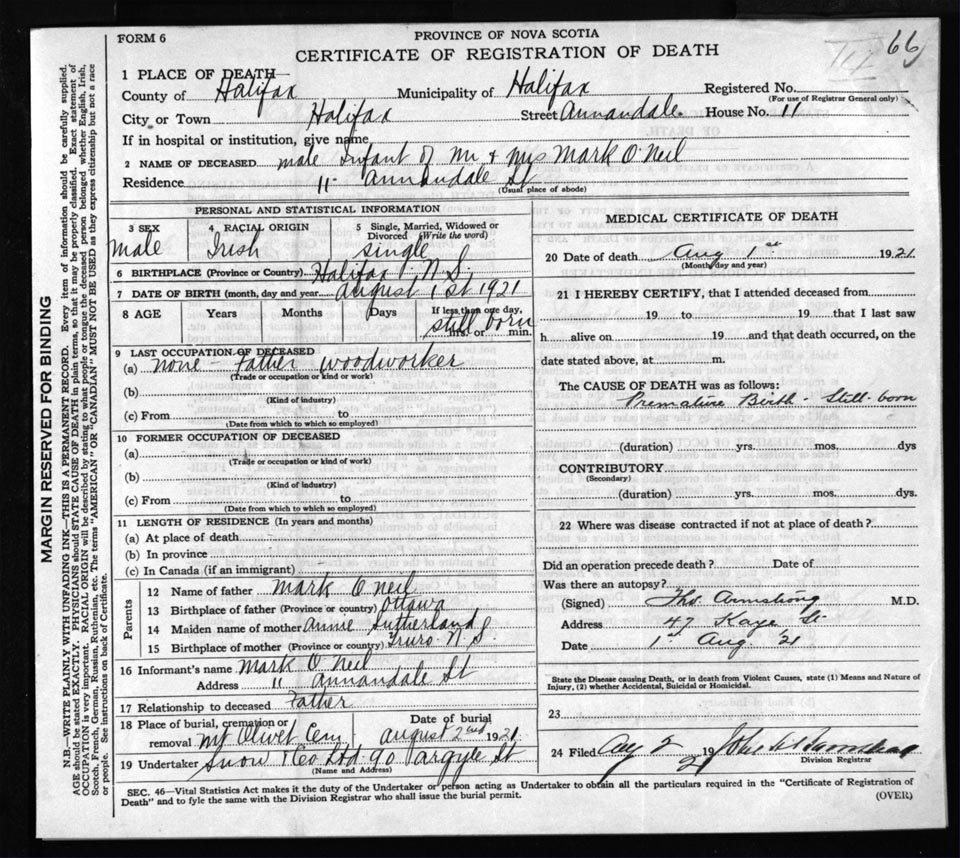 FORM 6
PROVINCE OF NOVA SCOTIA
66
CERTIFICATE OF REGISTRATION OF DEATH
1 PLACE OF DEATH
County of Halifax Municipality of Halifax Registered No.
(For use of Registrar General only)
City or Town Halifax Street Annandale. House No. 11
If in hospital or institution, give name
2 NAME OF DECEASED male Infant of Mr & Mrs Mark O'Neil
Residence 11 Annandale St
(Usual place of abode)
PERSONAL AND STATISTICAL INFORMATION
3 SEX 4 RACIAL ORIGIN 5 Single, Married, Widowed or Divorced (Write the word)
male Irish single
6 BIRTHPLACE (Province or Country) Halifax N.S.
7 DATE OF BIRTH (month, day and year) august 1st 1921
8 AGE Years Months Days If less than one day,
still born
hrs. or min.
9 LAST OCCUPATION OF DECEASED
(a) none - Father woodworker
(Trade or occupation or kind or work)
(b)
(Kind of industry)
(c) From to
(Date from which to which so employed)
10 FORMER OCCUPATION OF DECEASED
(a)
(Trade or occupation or kind of work)
(b)
(Kind of industry)
(c) From to
(Date from which to which so employed)
11 LENGTH OF RESIDENCE (In years and months)
(a) At place of death
(b) In province
(c) In Canada (if an immigrant)
Parents
12 Name of father Mark O'neil
13 Birthplace of father (Province or country) Ottawa
14 Maiden name of mother Annie Sutherland
15 Birthplace of mother (Province or country) Truro N.S.
16 Informant's name Mark O'Neil
Address 11 Annandale St
17 Relationship to deceased Father
18 Place of burial, cremation or removal Mt Olivet Cem Date of burial august 2nd 1921
19 Undertaker Snow & Co Ltd 90 argyle St
(Name and Address)
MEDICAL CERTIFICATE OF DEATH
20 Date of death Aug 1st 1921
(Month, day and year)
21 I HEREBY CERTIFY, that I attended deceased from
19 to 19 that I last saw
h alive on 19 and that death occurred, on the
date stated above, at m.
The CAUSE OF DEATH was as follows:
Premature Birth - Still-born
(duration) yrs. mos. dys
CONTRIBUTORY
(Secondary)
(duration) yrs. mos. dys.
22 Where was disease contracted if not at place of death?
Did an operation precede death? Date of
Was there an autopsy?
(Signed) Tho. Armstrong M.D.
Address 47 Kaye St.
Date 1st Aug '21
State the Disease causing Death, or in death from Violent Causes, state (1) Means and Nature of
Injury, (2) whether Accidental, Suicidal or Homicidal.
23
24 Filed Aug 2 1921
Division Registrar
SEC. 46—Vital Statistics Act makes it the duty of the Undertaker or person acting as Undertaker to obtain all the particulars required in the "Certificate of Registration of
Death" and to fyle the same with the Division Registrar who shall issue the burial permit.
(OVER)
MARGIN RESERVED FOR BINDING
N.B.—WRITE PLAINLY WITH UNFADING INK—THIS IS A PERMANENT RECORD. Every item of information should be carefully supplied.
AGE should be stated EXACTLY. PHYSICIANS should STATE CAUSE OF DEATH in plain terms, so that it may be properly classified. Exact statement of
OCCUPATION is very important. RACIAL ORIGIN will be described by stating to what people or tongue the deceased person belonged whether English, Irish,
Scotch, French, German, Russian, Ruthenian, etc. The terms "AMERICAN" OR "CANADIAN" MUST NOT BE USED as they express citizenship but not a race
or people. See instructions on back of Certificate.